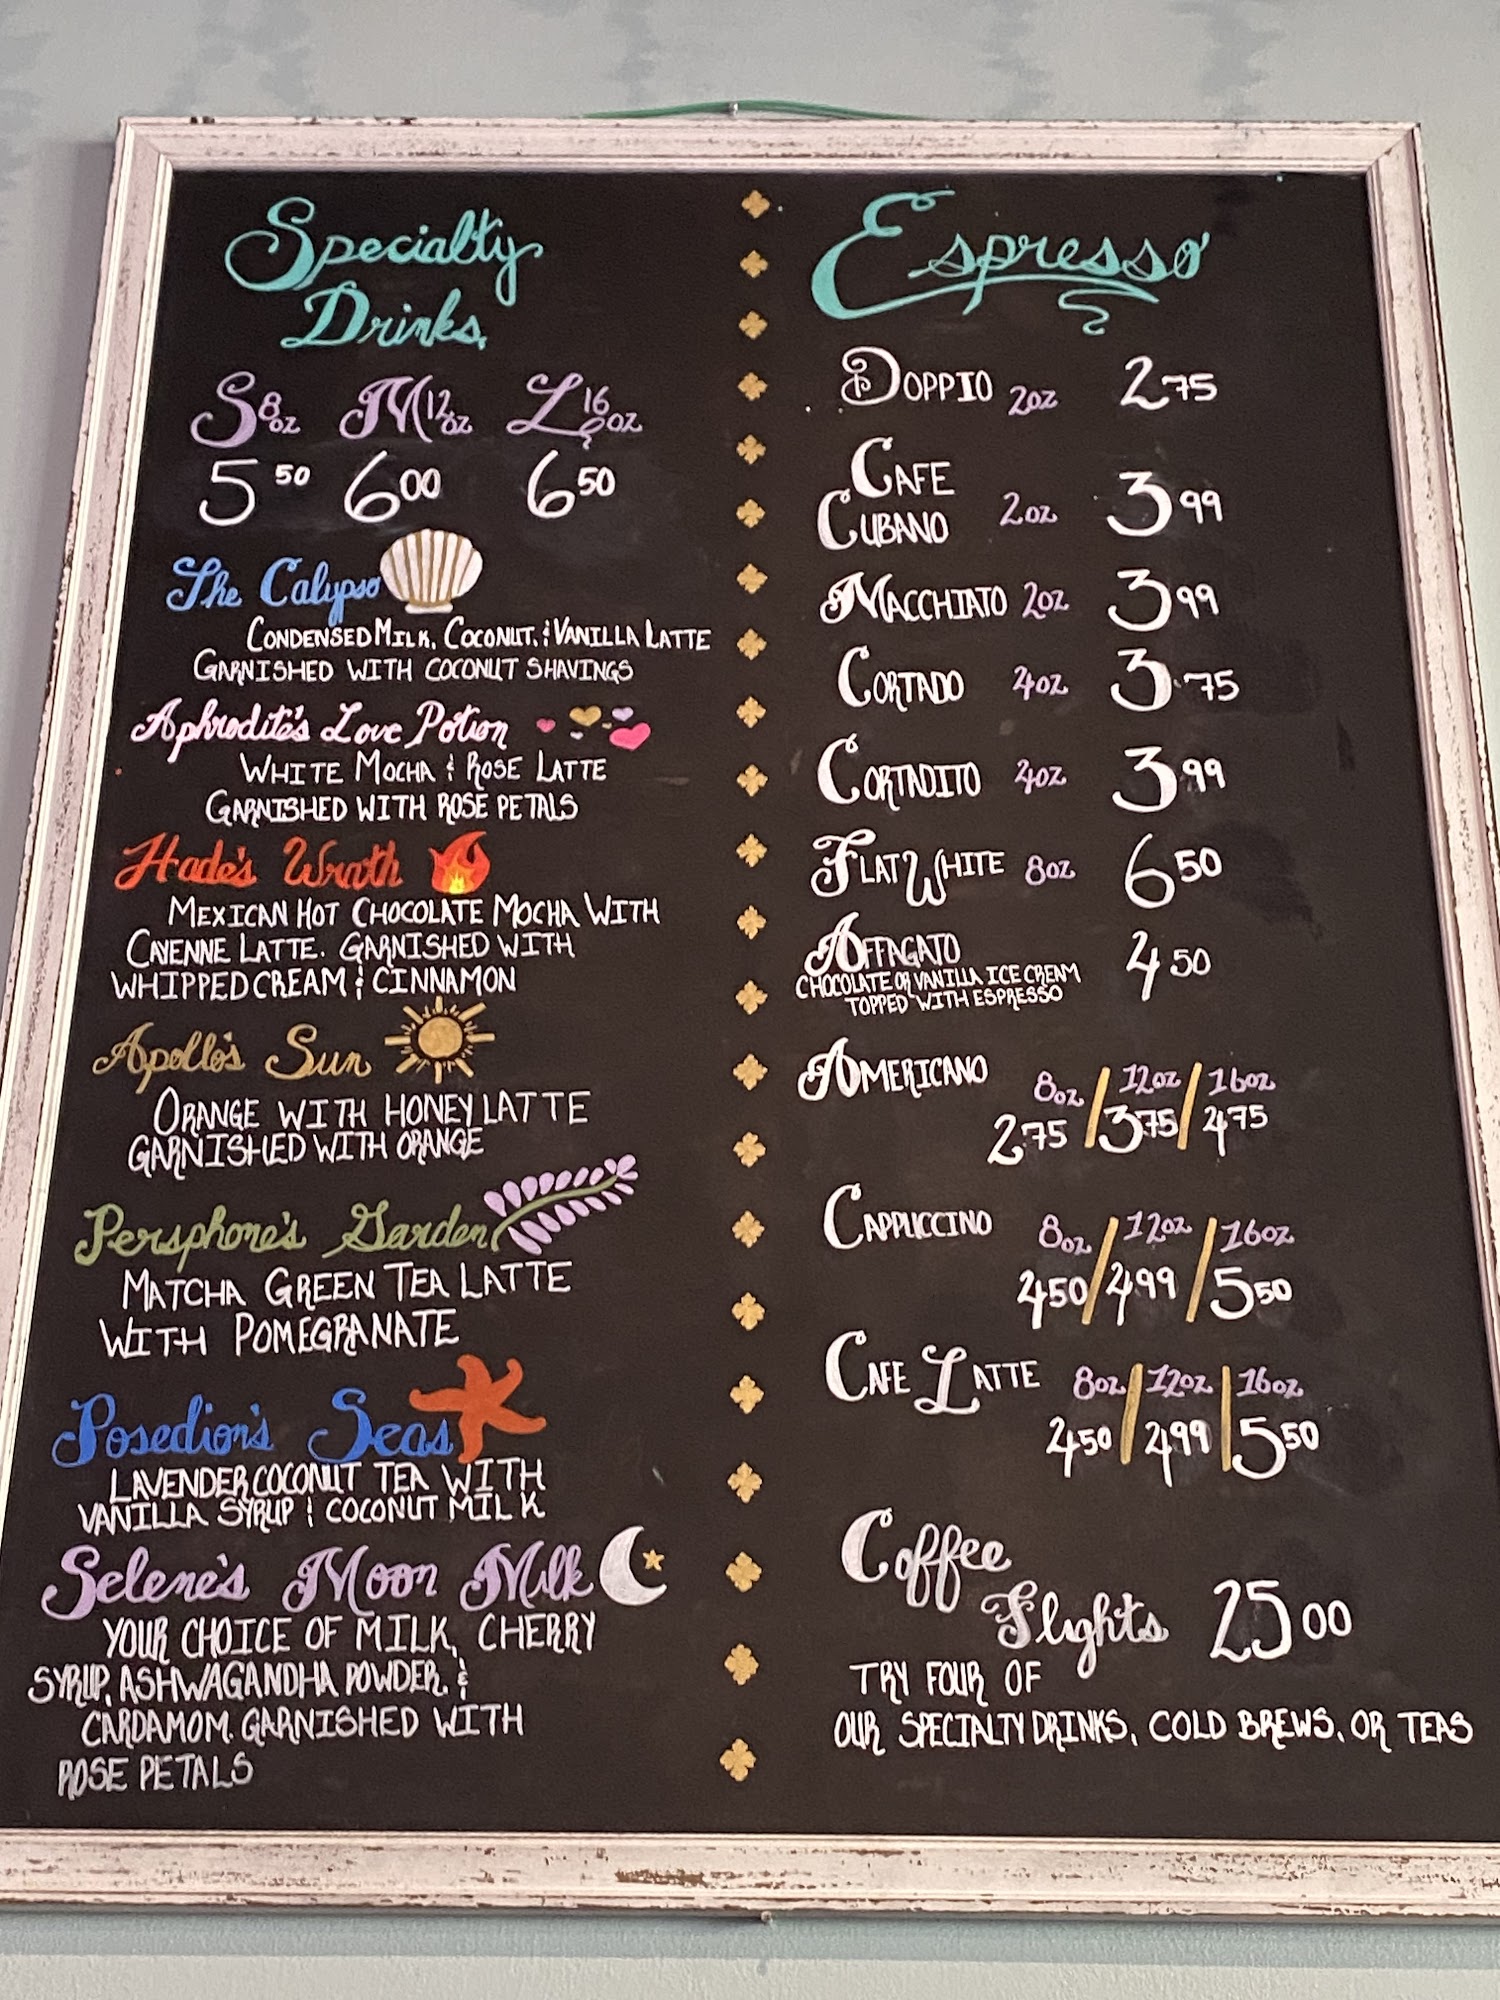 Specialty
Drinks
S 8oz M 12oz L 16oz
5 50 6 00 6 50
The Calypso
CONDENSED MILK, COCONUT, & VANILLA LATTE
GARNISHED WITH COCONUT SHAVINGS
Aphrodite's Love Potion
WHITE MOCHA & ROSE LATTE
GARNISHED WITH ROSE PETALS
Hade's Wrath
MEXICAN HOT CHOCOLATE MOCHA WITH
CAYENNE LATTE. GARNISHED WITH
WHIPPED CREAM & CINNAMON
Apollo's Sun
ORANGE WITH HONEY LATTE
GARNISHED WITH ORANGE
Persphone's Garden
MATCHA GREEN TEA LATTE
WITH POMEGRANATE
Posedion's Seas
LAVENDER COCONUT TEA WITH
VANILLA SYRUP & COCONUT MILK
Selene's Moon Milk
YOUR CHOICE OF MILK, CHERRY
SYRUP, ASHWAGANDHA POWDER, &
CARDAMOM. GARNISHED WITH
ROSE PETALS
Espresso
DOPPIO 2oz 2 75
CAFE
CUBANO 2oz 3 99
MACCHIATO 2oz 3 99
CORTADO 4oz 3.75
CORTADITO 4oz 3.99
FLAT WHITE 8oz 6 50
AFFAGATO 4 50
CHOCOLATE OR VANILLA ICE CREAM
TOPPED WITH ESPRESSO
AMERICANO 8oz / 12oz / 16oz
2.75 / 3 75 / 4 75
CAPPUCCINO 8oz / 12oz / 16oz
4 50 / 4 99 / 5 50
CAFE LATTE 8oz / 12oz / 16oz
4 50 / 4 99 / 5 50
Coffee
Flights 25 00
TRY FOUR OF
OUR SPECIALTY DRINKS, COLD BREWS, OR TEAS